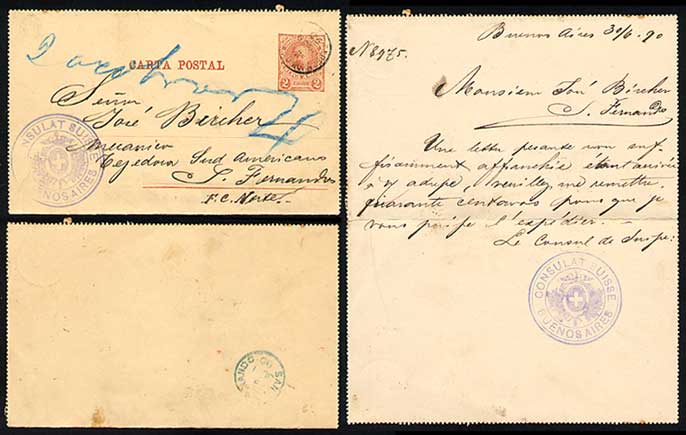 CARTA POSTAL
2
2
Señor
José Bircher
Mecanico
Tejedora Sud Americano
S. Fernando
F.C. Norte.
CONSULAT SUISSE
BUENOS AIRES
SAN
Buenos Aires 30/6 - 90
N 8975.
Monsieur José Bircher
S. Fernando
Une lettre pesante non suf-
fisamment affranchie étant arrivée
à v/ adresse, veuillez me remettre
quarante centavos pour que je
vous puisse l'expédier.
Le Consul de Suisse:
CONSULAT SUISSE
BUENOS AIRES